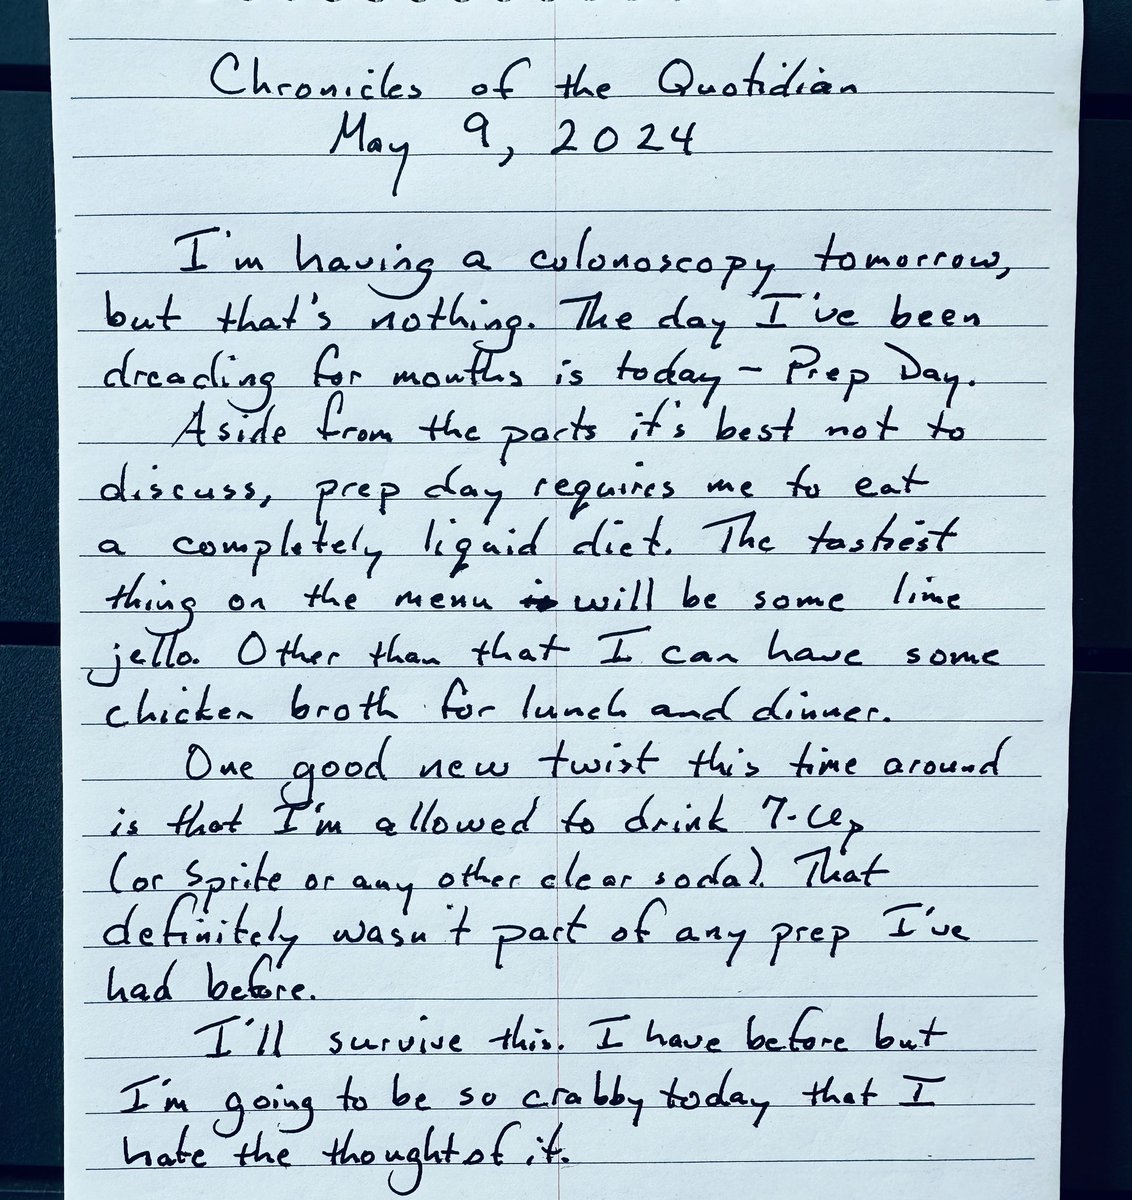 Chronicles of the Quotidian
May 9, 2024
I'm having a colonoscopy tomorrow,
but that's nothing. The day I've been
dreading for months is today - Prep Day.
Aside from the parts it's best not to
discuss, prep day requires me to eat
a completely liquid diet. The tastiest
thing on the menu will be some lime
jello. Other than that I can have some
chicken broth for lunch and dinner.
One good new twist this time around
is that I'm allowed to drink 7-Up
(or Sprite or any other clear soda). That
definitely wasn't part of any prep I've
had before.
I'll survive this. I have before but
I'm going to be so crabby today that I
hate the thought of it.